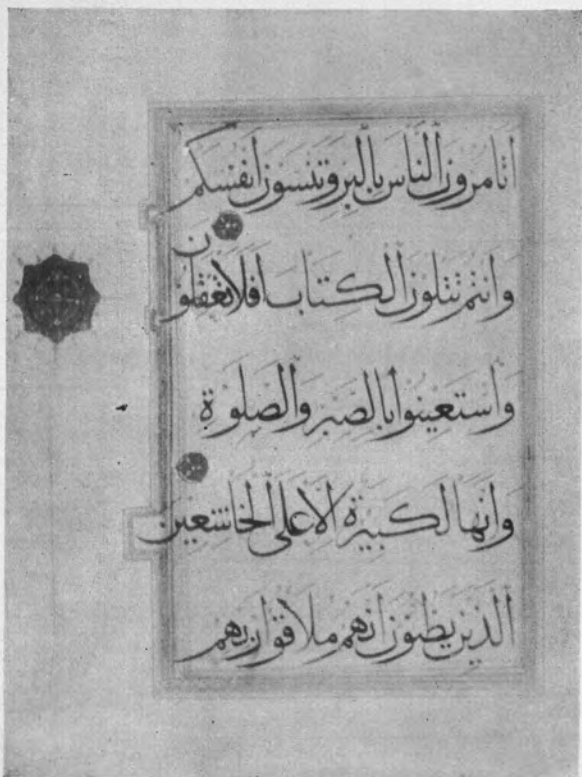 اتامرون الناس بالبر وتنسون انفسكم
وانتم تتلون الكتاب افلا تعقلون
واستعينوا بالصبر والصلوة
وانها لكبيرة الا على الخاشعين
الذين يظنون انهم ملاقوا ربهم